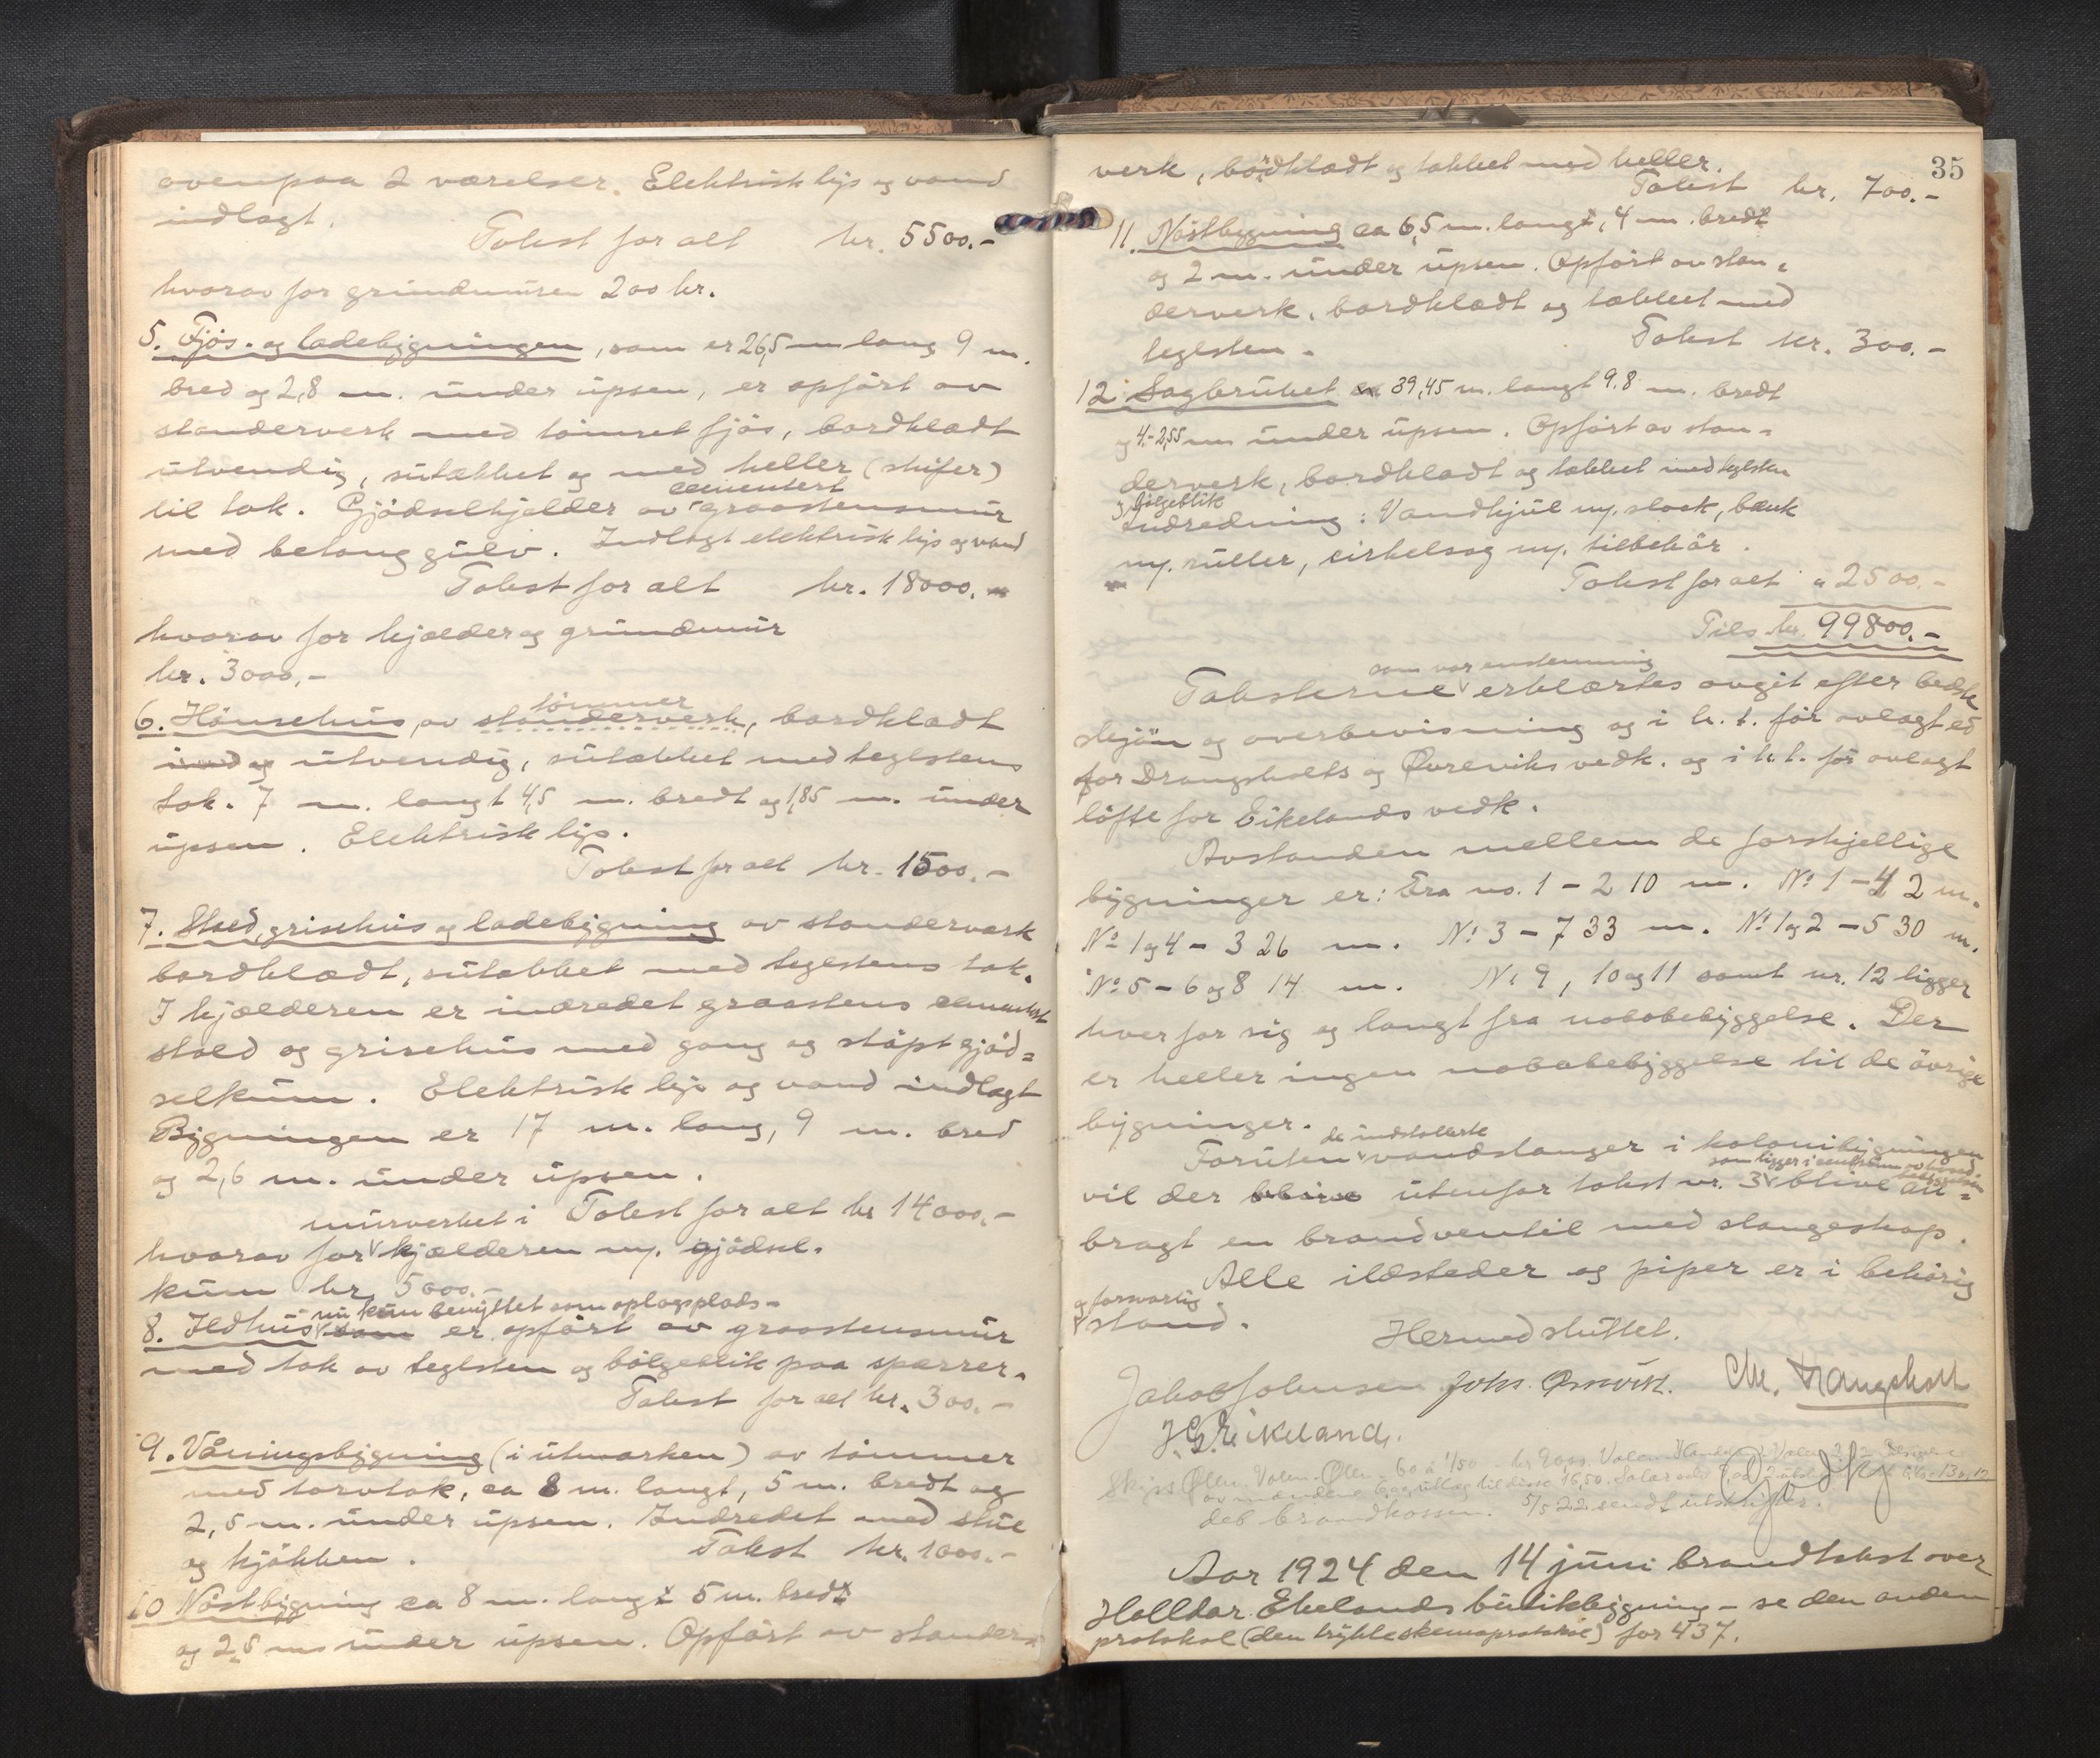 ovenpaa 2 værelser. Elektrisk lys og vand
indlagt.
Takst for alt kr. 5500.-
hvorav for grundmuren 200 kr.
5. Fjös- og ladebygningen, som er 26,5 m lang 9 m.
bred og 2,8 m. under upsen, er opfört av
standerverk med tömret fjös, bordklædt
utvendig, sutækket og med heller (skifer)
cementert
til tak. Gjödselkjelder av graastensmur
med betong gulv. Indlagt elektrisk lys og vand
Takst for alt kr. 18000.-
hvorav for kjælder og grundmur
kr. 3000,-
tömmer
6. Hönsehus, av standerverk, bordklædt
ind og utvendig, sutækket med teglstens
tak. 7 m. langt 4,5 m. bredt og 1,85 m. under
upsen. Elektrisk lys.
Takst for alt kr. 1500.-
7. Stæd, grisehus og ladebygning av standerverk
bordklædt, sutækket med teglstens tak.
I kjælderen er indredet graastens cementert
stæd og grisehus med gang og stöpt gjöd=
selkum. Elektrisk lys og vand indlagt
Bygningen er 17 m. lang, 9 m. bred
og 2,6 m. under upsen.
murverket i Takst for alt kr 14000.-
hvorav for kjælderen m. gjödsel.
kum kr. 5000.-
nu kun benyttet som oplagsplads-
8. Ildhus som er opfört av graastensmur
med tak av teglsten og bölgeblik paa spærrer.
Takst for alt kr. 300.-
9. Våningsbygning (i utmarken) av tömmer
med torvtak, ca 8 m. langt, 5 m. bredt og
2,5 m. under upsen. Indredet med stue
og kjökken. Takst kr. 1000.-
10 Nöstbygning ca 8 m. langt 5 m. bredt
og 2,5 m under upsen. Opfört av stander=
35
verk, bordklædt og tækket med heller.
Takst kr. 700.-
11. Nöstbygning ca 6,5 m. langt, 4 m. bredt
og 2 m. under upsen. Opfört av stan=
derverk, bordklædt og tækket med
teglsten. Takst kr. 300.-
12. Sagbruket ca 39,45 m. langt 9.8 m. bredt
og 4.-2,55 m under upsen. Opfört av stan=
derverk, bordklædt og tækket med teglsten
og bölgeblik
Indredning: Vandhjul m. stock, bænk
m. ruller, cirkelsag m. tilbehör.
Takst for alt " 2500.-
Tils kr. 99800.-
som var enstemmig
Taksterne erklærtes avgit efter bedste
skjön og overbevisning og i h. t. för avlagt ed
for Drangsholts og Övreviks vedk. og i h. t. för avlagt
löfte for Eikelands vedk.
Avstanden mellem de forskjellige
bygninger er: Fra no. 1 - 2 10 m. No 1 - 4 2 m.
No 1 og 4 - 3 26 m. No 3 - 7 33 m. No 1 og 2 - 5 30 m.
No 5 - 6 og 8 14 m. No 9, 10 og 11 samt nr. 12 ligger
hver for sig og langt fra nabobebyggelse. Der
er heller ingen nabobebyggelse til de övrige
bygninger.
de installerte
Foruten vandslanger i kolonibygningen
som ligger i centrum av hoved-
bebyggelsen
vil der blive utenfor takst nr. 3 blive an=
bragt en brandventil med slangeskap.
Alle ildsteder og piper er i behörig
og forsvarlig
stand.
Hermed sluttet.
Jakob Johnsen Johs. Øvrevik. Chr. Drangsholt
J. G. Eikeland.
Godkj
Skyss Ölen-Valen-Ölen 60 a 1/50
5/5 22 sendt utskrifter.
det brandkassen.
Aar 1924 den 14 juni brandtakst over
Halldor Ekelands butikbygning - se den anden
protokol (den trykte skemaprotokol) for 437.